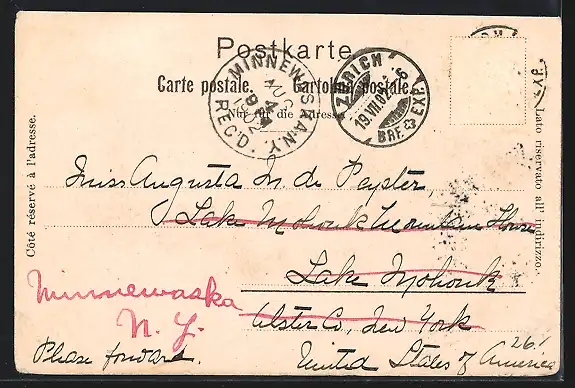 Postkarte.
Carte postale. Cartolina postale.
Nur für die Adresse.
MINNEWASKA, N.Y.
AUG
4
9 AM
1902
REC'D.
ZÜRICH
19.VII.02.
BRF. EXP.
Côté réservé à l'adresse.
Lato riservato all' indirizzo.
Miss Augusta M. de Peyster
Lake Mohonk Mountain House
Lake Mohonk
Minnewaska
N. Y.
Ulster Co., New York
Please forward.
United States of America
261